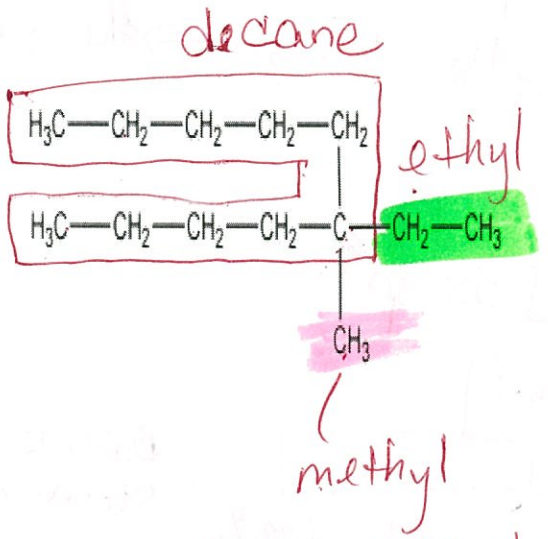 decane
H₃C—CH₂—CH₂—CH₂—CH₂
ethyl
H₃C—CH₂—CH₂—CH₂—C—CH₂—CH₃
CH₃
methyl